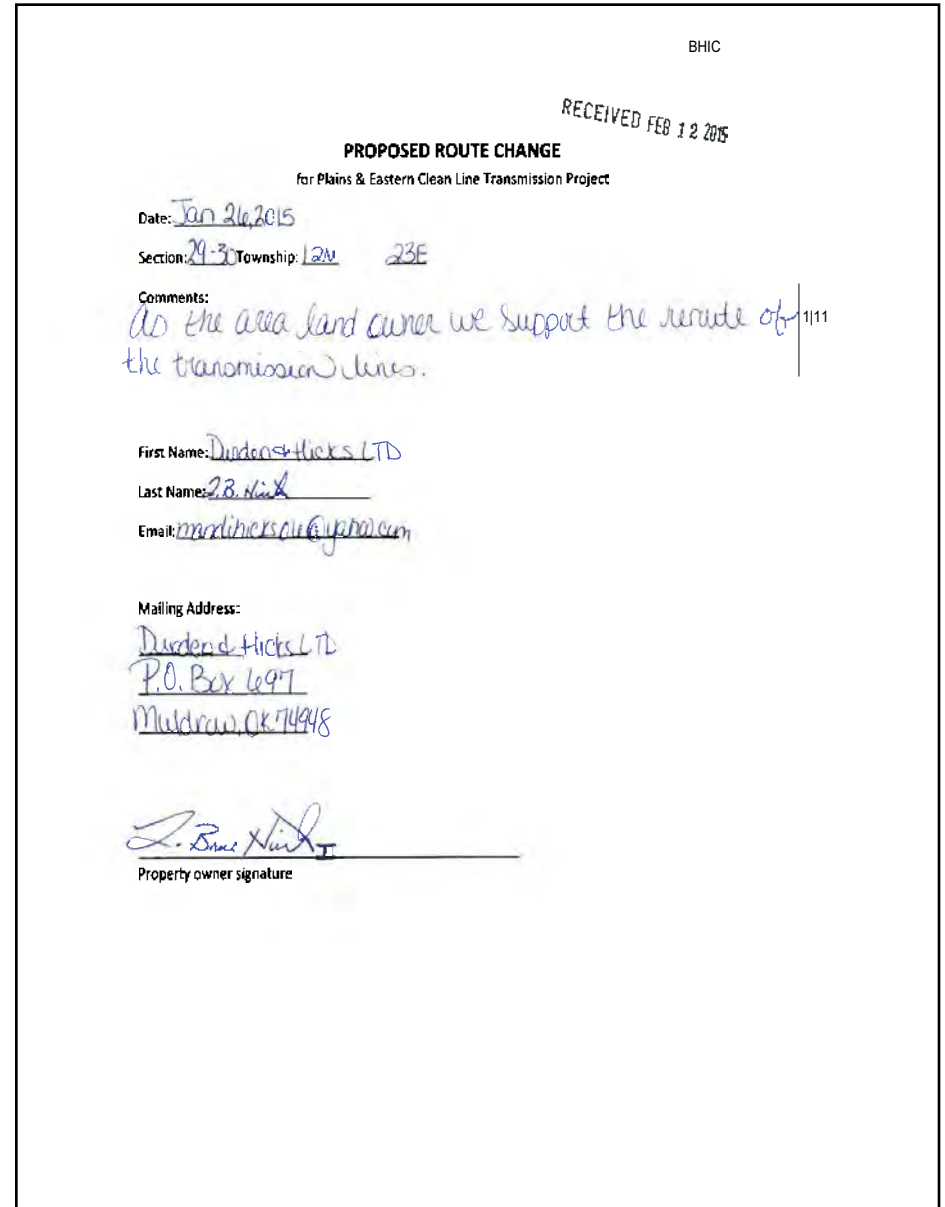 BHIC
RECEIVED FEB 12 2015
PROPOSED ROUTE CHANGE
for Plains & Eastern Clean Line Transmission Project
Date: Jan 26, 2015
Section: 29-30 Township: 12N 23E
Comments:
As the area land owner we support the reroute of
1|11
the transmission lines.
First Name: Durden & Hicks LTD
Last Name:
Email:
Mailing Address:
Durden & Hicks LTD
P.O. Box 697
Muldrow, OK 74948
Property owner signature